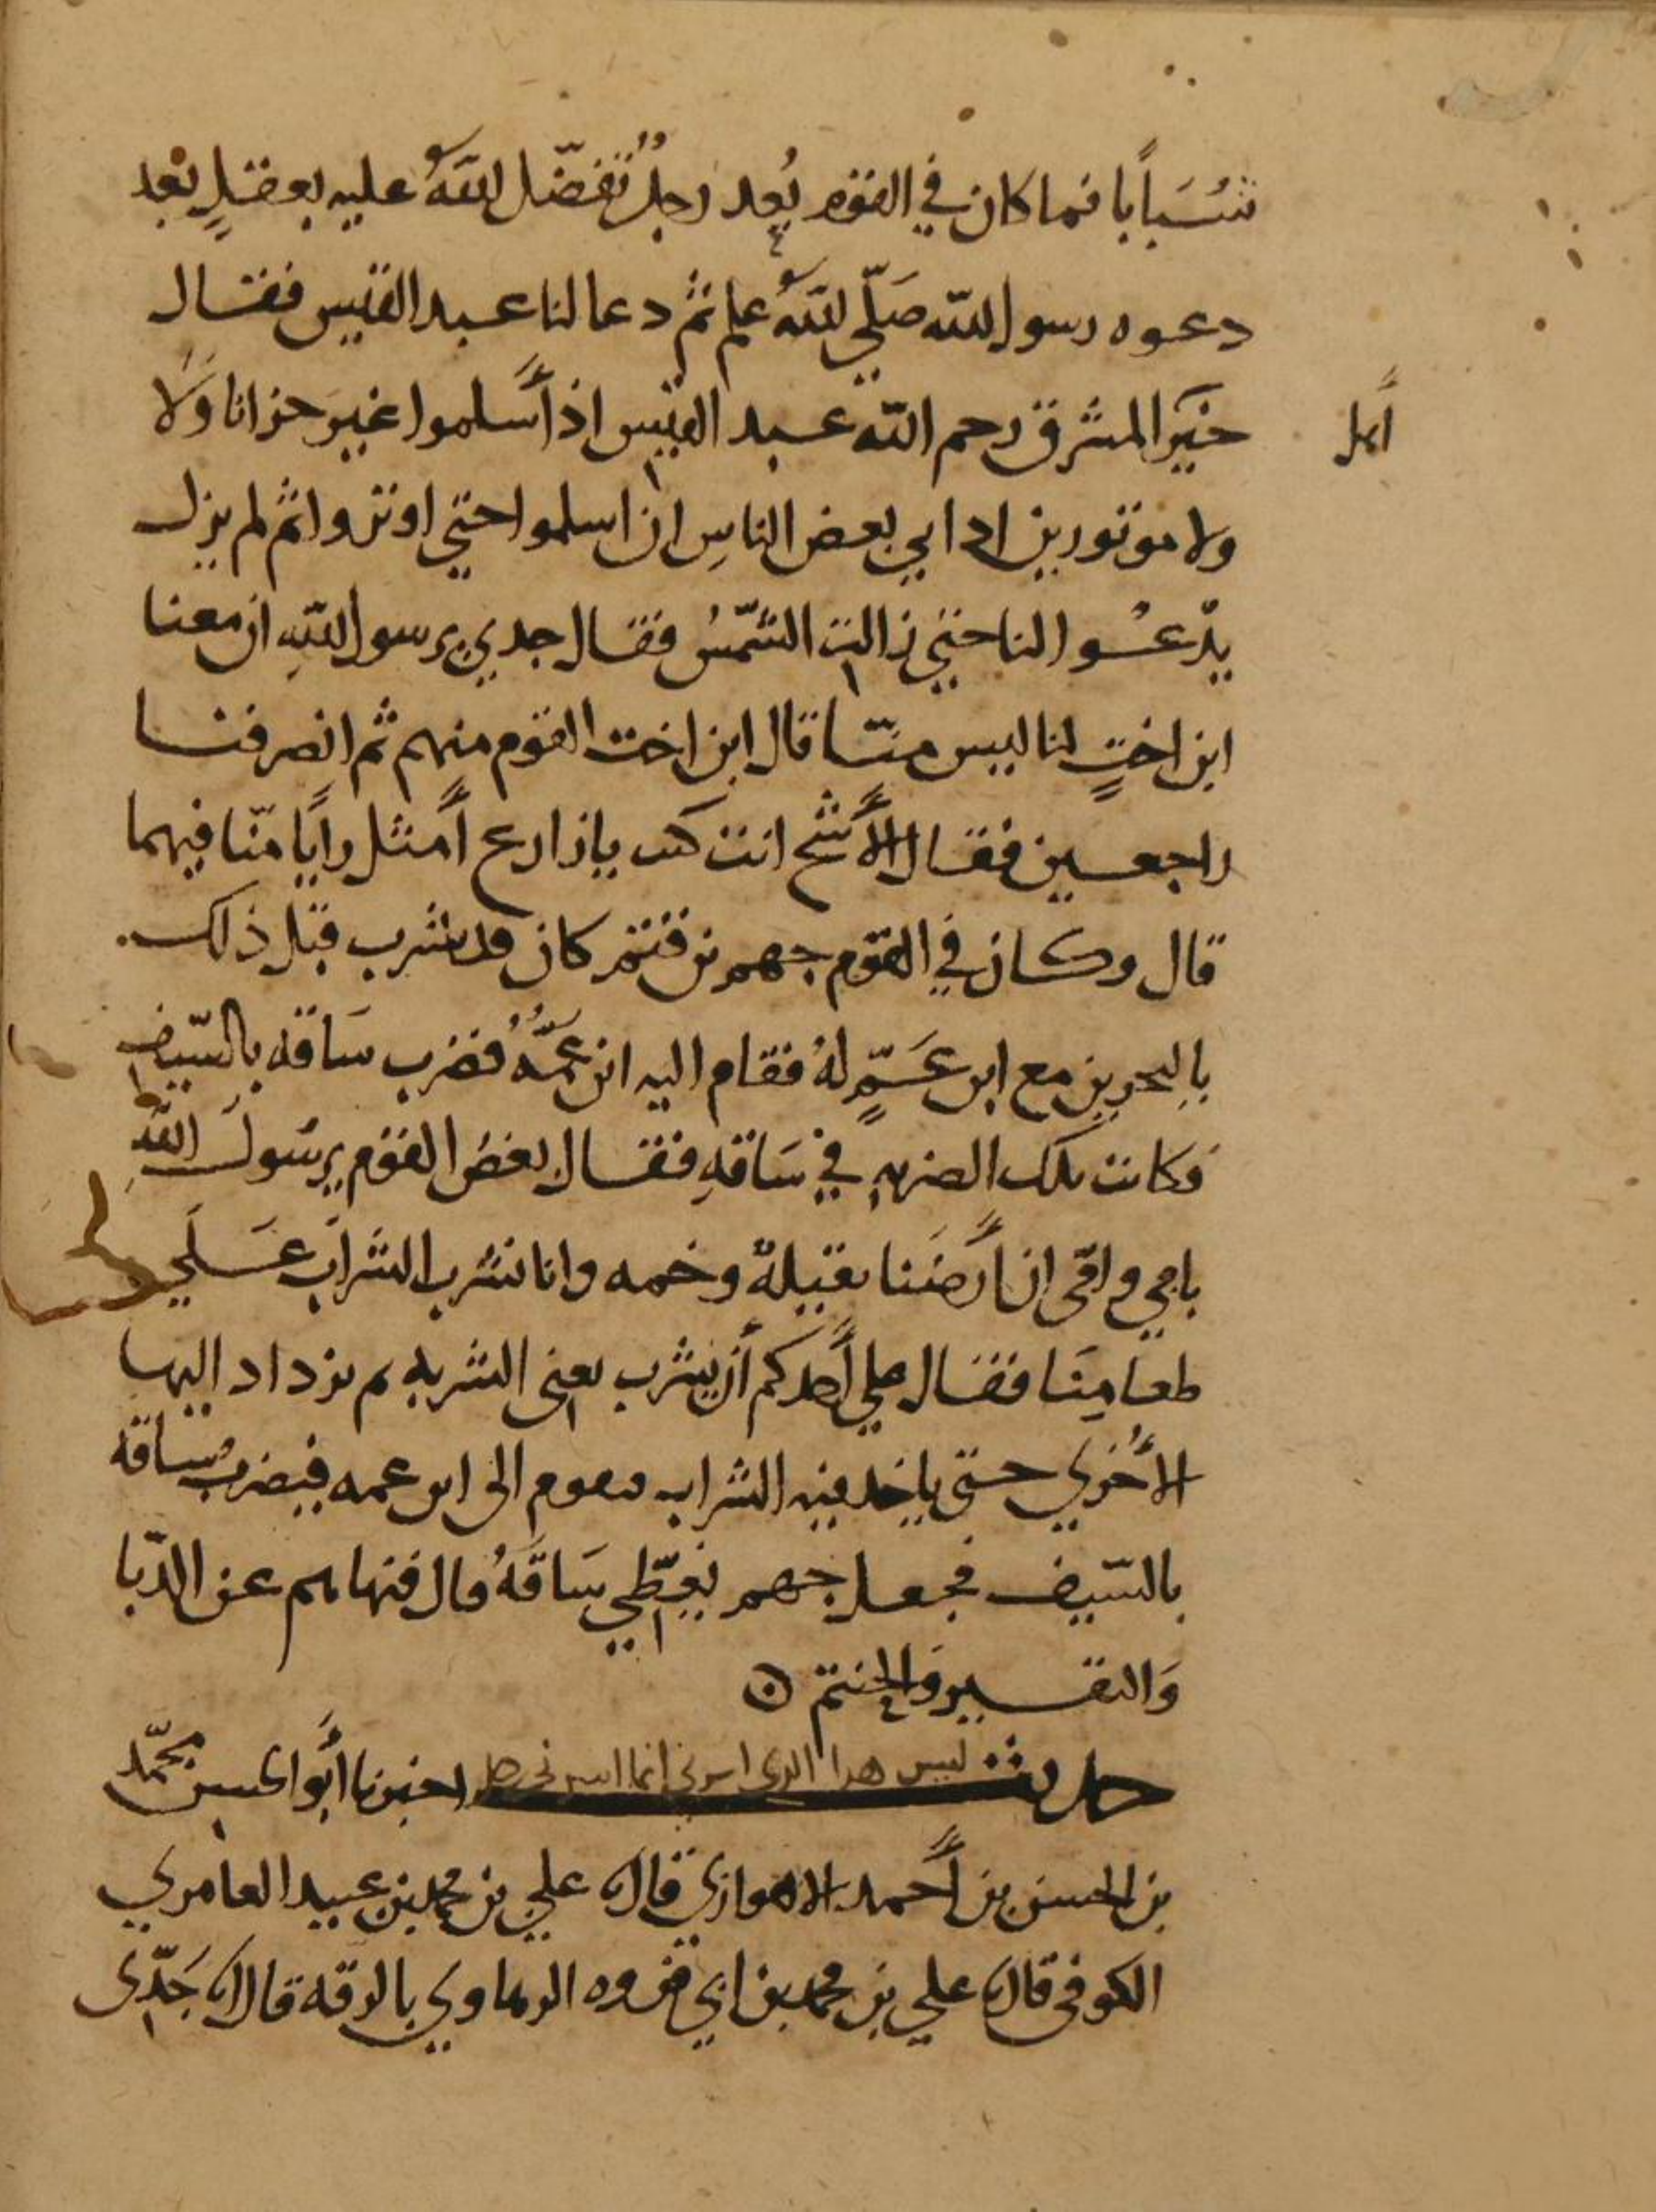 شبابا فما كان في القوم بعد رجل تفضل الله عليه بعقل بعد
دعوه رسول الله صلى الله علم ثم دعا لنا عبد القيس فقال
خير المشرق رحم الله عبد القيس اذ أسلموا غير خزايا ولا
أهل
ولا موتورين اذ ابي بعض الناس ان اسلموا حتي اوتروا ثم لم يزل
يدعوا لنا حتي زالت الشمس فقال جدي يرسول الله ان معنا
ابن اخت لنا ليس منا قال ابن اخت القوم منهم ثم انصرفنا
راجعين فقال الأشج انت كنت يا زارع أمثل رأيا منا فيهما
قال وكان في القوم جهم بن قثم كان قد شرب قبل ذلك
بالبحرين مع ابن عم له فقام اليه ابن عمه فضرب ساقه بالسيف
فكانت تلك الضربه في ساقه فقال بعض القوم يرسول الله
بابي وامي ان أرضنا ثقيلة وخمه وانا نشرب الشراب علي
طعامنا فقال علي أحدكم أن يشرب يعني الشربه ثم يزداد اليها
الأخري حتى ياخذ فيه الشراب فيقوم الى ابن عمه فيضرب ساقه
بالسيف فجعل جهم يغطي ساقه قال فنهاهم عن الدبا
والنقير والحنتم
حديث ليس هدا الدى اسرني انما اسرني رجل اخبرنا أبو الحسين محمد
بن الحسن بن أحمد الاهوازي قال علي بن محمد بن عبيد العامري
الكوفى قال علي بن محمد بن ابي فروه الرهاوي بالرقه قال جدى